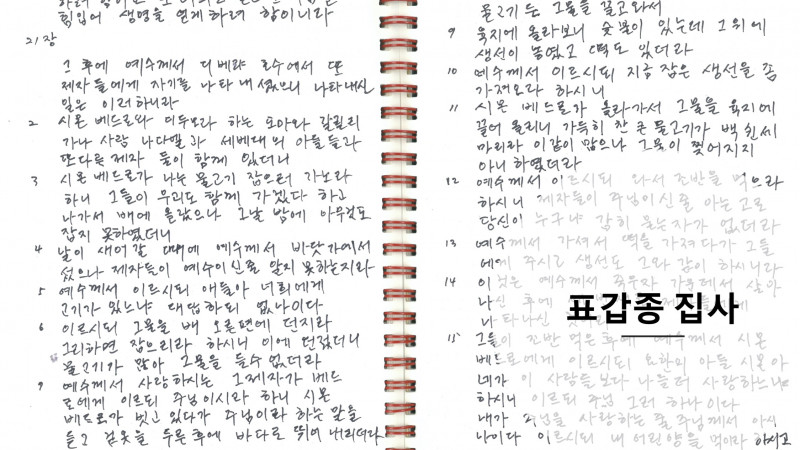 힘입어 생명을 얻게하려 함이니라
21장
그 후에 예수께서 디베랴 호수에서 또
제자들에게 자기를 나타내셨으니 나타내신
일은 이러하니라
2 시몬 베드로와 디두모라 하는 도마와 갈릴리
가나 사람 나다나엘과 세베대의 아들들과
또다른 제자 둘이 함께 있더니
3 시몬 베드로가 나는 물고기 잡으러 가노라
하니 그들이 우리도 함께 가겠다 하고
나가서 배에 올랐으나 그날 밤에 아무것도
잡지 못하였더니
4 날이 새어갈 때에 예수께서 바닷가에서
셨으나 제자들이 예수이신줄 알지 못하는지라
5 예수께서 이르시되 얘들아 너희에게
고기가 있느냐 대답하되 없나이다
6 이르시되 그물을 배 오른편에 던지라
그리하면 잡으리라 하시니 이에 던졌더니
물고기가 많아 그물을 들 수 없더라
7 예수께서 사랑하시는 그제자가 베드
로에게 이르되 주님이시라 하니 시몬
베드로가 벗고 있다가 주님이라 하는 말을
듣고 겉옷을 두른후에 바다로 뛰어 내리더라
물고기 든 그물을 끌고와서
9 육지에 올라보니 숯불이 있는데 그위에
생선이 놓였고 떡도 있더라
10 예수께서 이르시되 지금 잡은 생선을 좀
가져오라 하시니
11 시몬 베드로가 올라가서 그물을 육지에
끌어 올리니 가득히 찬 큰 물고기가 백 쉰세
마리라 이같이 많으나 그물이 찢어지지
아니하였더라
12 예수께서 이르시되 와서 조반을 먹으라
하시니 제자들이 주님이신줄 아는고로
당신이 누구냐 감히 묻는자가 없더라
13 예수께서 가셔서 떡을 가져다가 그들
에게 주시고 생선도 그와 같이 하시니라
14 이것은 예수께서 죽은자 가운데서 살아
나신 후에
나타나신
표갑종 집사
15 그들이 조반 먹은후에 예수께서 시몬
베드로에게 이르시되 요한의 아들 시몬아
네가 이 사람들보다 나를 더 사랑하느냐
하시니 이르되 주님 그러하나이다
내가 주님을 사랑하는 줄 주님께서 아시
나이다 이르시되 내 어린양을 먹이라 하시고